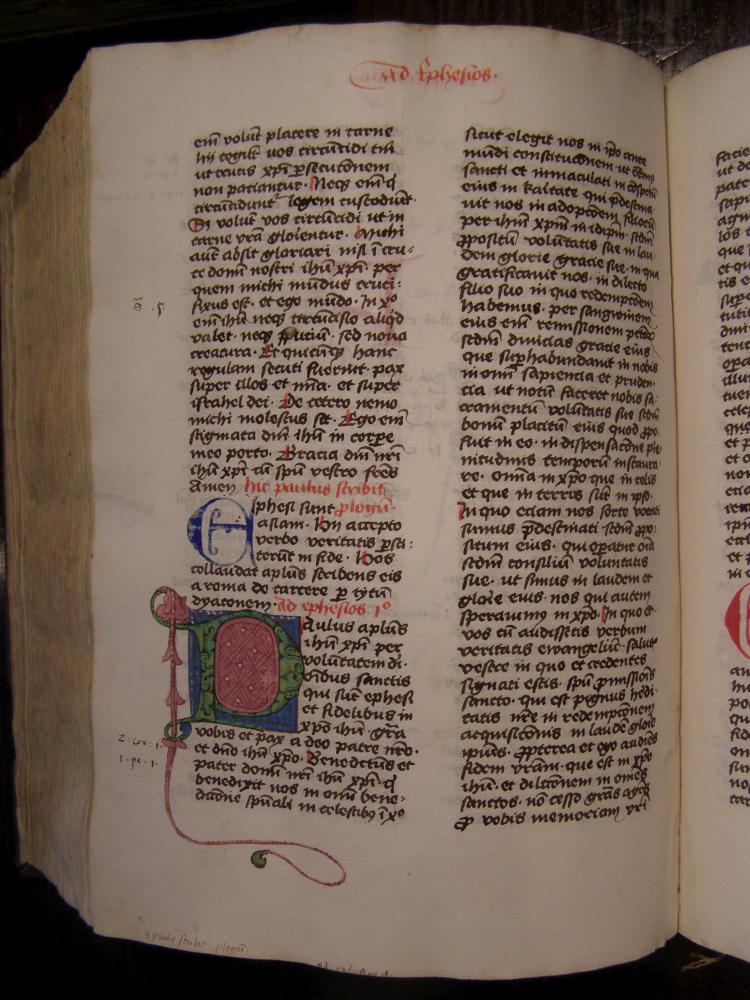 ad Ephesios.
em̄ volūt placere in carne
hii cogūt vos circūcidi tm̄
ut crucis xp̄i p̲secutōnem
non patiantur. Neq̲ em̄ q̄
circūcidunt᷑ legem custodiūt.
s̄ volūt vos circūcidi ut in
carne vr̄a glōientur. Michi
aūt absit gloriari nisi ī cru-
ce domī nostri ih̄u xp̄i. per
quem michi mūdus cruci-
fixus est. et ego mūdo. In xp̄o
em̄ ih̄u neq̲ circūcisio aliqd
valet. neq̲ p̄putiū. sed nova
creatura. Et quicūq̲ hanc
regulam secuti fuerīnt. pax
super illos et mīa. et super
israhel dei. De cetero nemo
michi molestus sit. Ego em̄
stigmata dn̄i ih̄u in corp̲e
meo porto. Gracia dn̄i nr̄i
ih̄u xp̄i cū sp̄u vestro fr̄es
Amen hic paulus scribit
Ephesi sunt plogū
asiani. Hii accepto
verbo veritatis p̲sti-
terūt in fide. Hos
collaudat apl̄us scribens eis
a roma de carcere p̲ tytū
dyaconem. ad ephesios. 1º
Paulus apl̄us
ih̄u xp̄i per
voluntatem dī.
oībus sanctis
qui sūt ephesi
et fidelibus in
xp̄o ih̄u. Gr̄a
vobis et pax a deo patre nr̄o.
et dn̄o ih̄u xp̄o. Benedictus et
pater domī nr̄i ih̄u xp̄i q̄
benedixit nos in omī bene-
dictōne sp̄uali in celestibȝ ī xp̄o
sicut elegit nos in ip̄o ante
mūdi constitucōnem ut eēm̄
sancti et immaculati in cōspectu
eius in karitate qui p̄destina-
vit nos in adoptōem filiorū
per ih̄um xp̄m in idip̄m. scd̄m
ppositū volūtatis sue in lau-
dem glorie gracie sue. in qua
gratificavit nos. in dilecto
filio suo in quo redemptōem
habemus. per sanguinem
eius em̄ remissionem pctōr̄
scd̄m divicias gracie eius
que sup̲habundavit in nobis
in omī sapiencia et pruden-
cia ut notū faceret nobis sa-
cramentū volūtatis sue scdm̄
bonū placitū eius quod ppo-
suit in eo. in dispensacōne ple-
nitudinis temporū instaura-
re. omīa in xp̄o que in celis
et que in terris sūt in ipso.
In quo eciam nos sorte vocati
sumus p̄destinati scd̄m ppo-
situm eius. qui op̲atur oīa
scdm̄ consiliū voluntatis
sue. ut simus in laudem et
glōie eius. nos qui autem
speravimus in xp̄o. In quo et
vos cū audissetis verbum
veritatis ewangeliū salut᷑
vestre in quo et credentes
signati estis. sp̄u pmissiōis
sancto. qui est pignus hēdi-
tatis nr̄e in redemptōnem
acquisitōnis in laudē glōie
ipius. ppterea et ego audiēs
fidem vr̄am. que est in xp̄o
ih̄u. et dilctōnem in omēs
sanctos. nō cesso gr̄as agēs
p vobis memoriam vr̄i
c̄. 5.
2. cor. 1.
1. pe. 1.